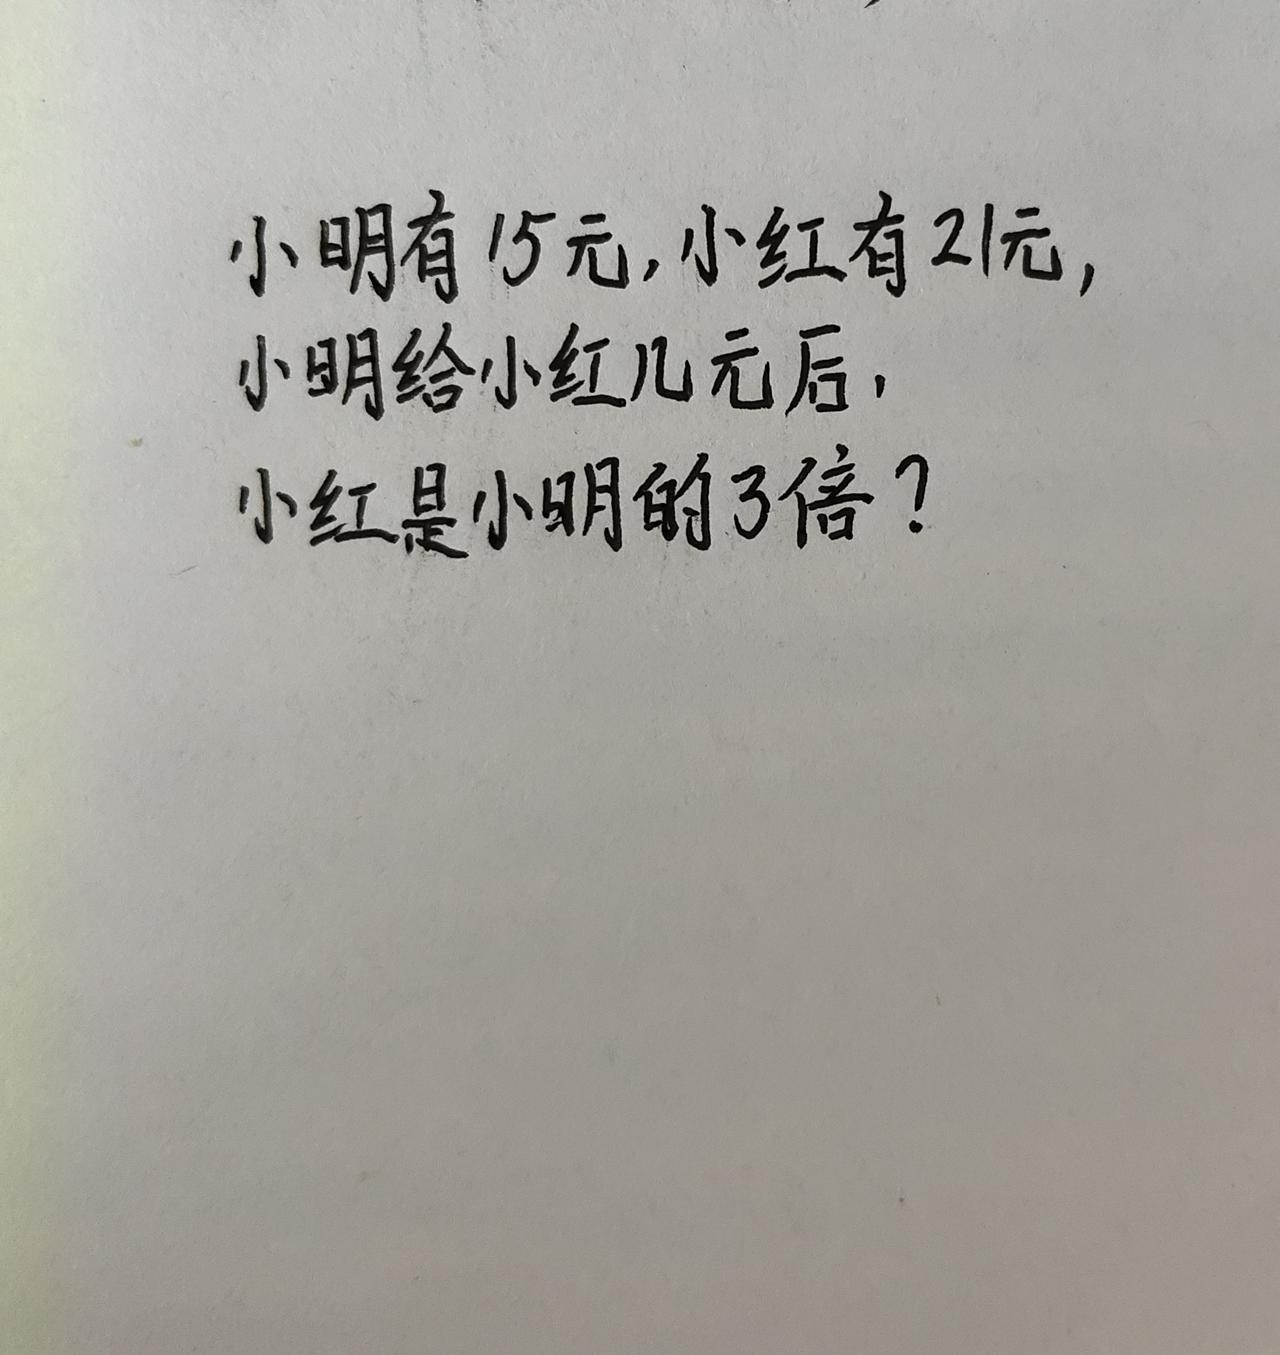 小明有15元，小红有21元，
小明给小红几元后，
小红是小明的3倍？